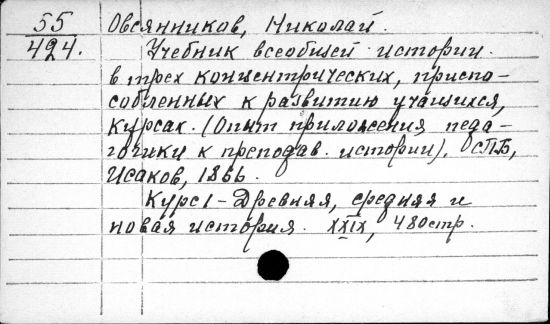 55
424.
Овсянников, Николай.
Учебник всеобщей истории
в трех концентрических, приспо-
собленных к развитию учащихся,
курсах. (Опыт приложения педа-
гогики к преподав. истории). СПБ,
Исаков, 1866.
Курс I - Древняя, средняя и
новая история. XXIX, 480 стр.